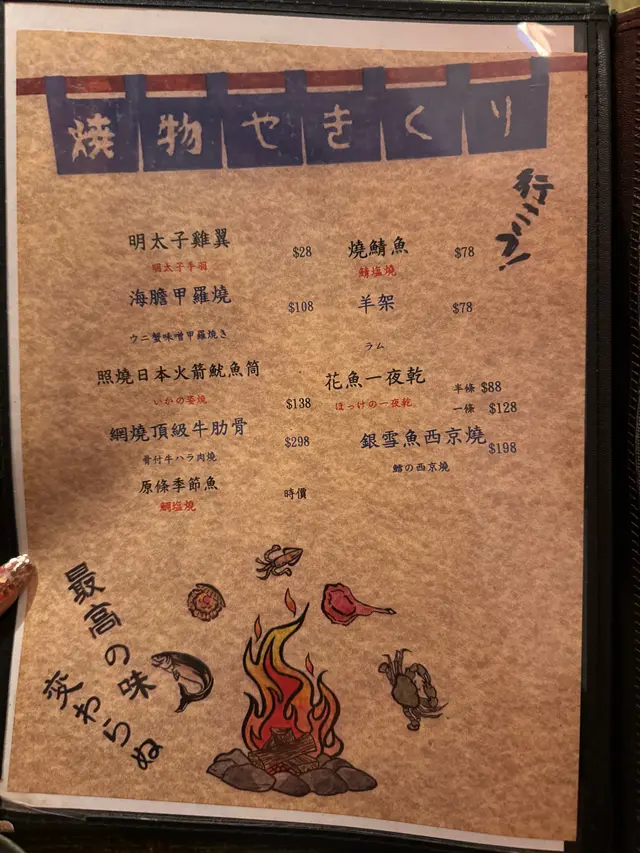 焼物やきくり
行こう!
明太子雞翼 $28
明太子手羽
海膽甲羅燒 $108
ウニ蟹味噌甲羅焼き
照燒日本火箭魷魚筒
いかの姿焼 $138
網燒頂級牛肋骨 $298
骨付牛ハラ肉燒
原條季節魚 時價
鯛塩燒
燒鯖魚 $78
鯖塩燒
羊架 $78
ラム
花魚一夜乾 半條 $88
ほっけの一夜乾 一條 $128
銀雪魚西京燒 $198
鱈の西京燒
最高の味
変わらぬ